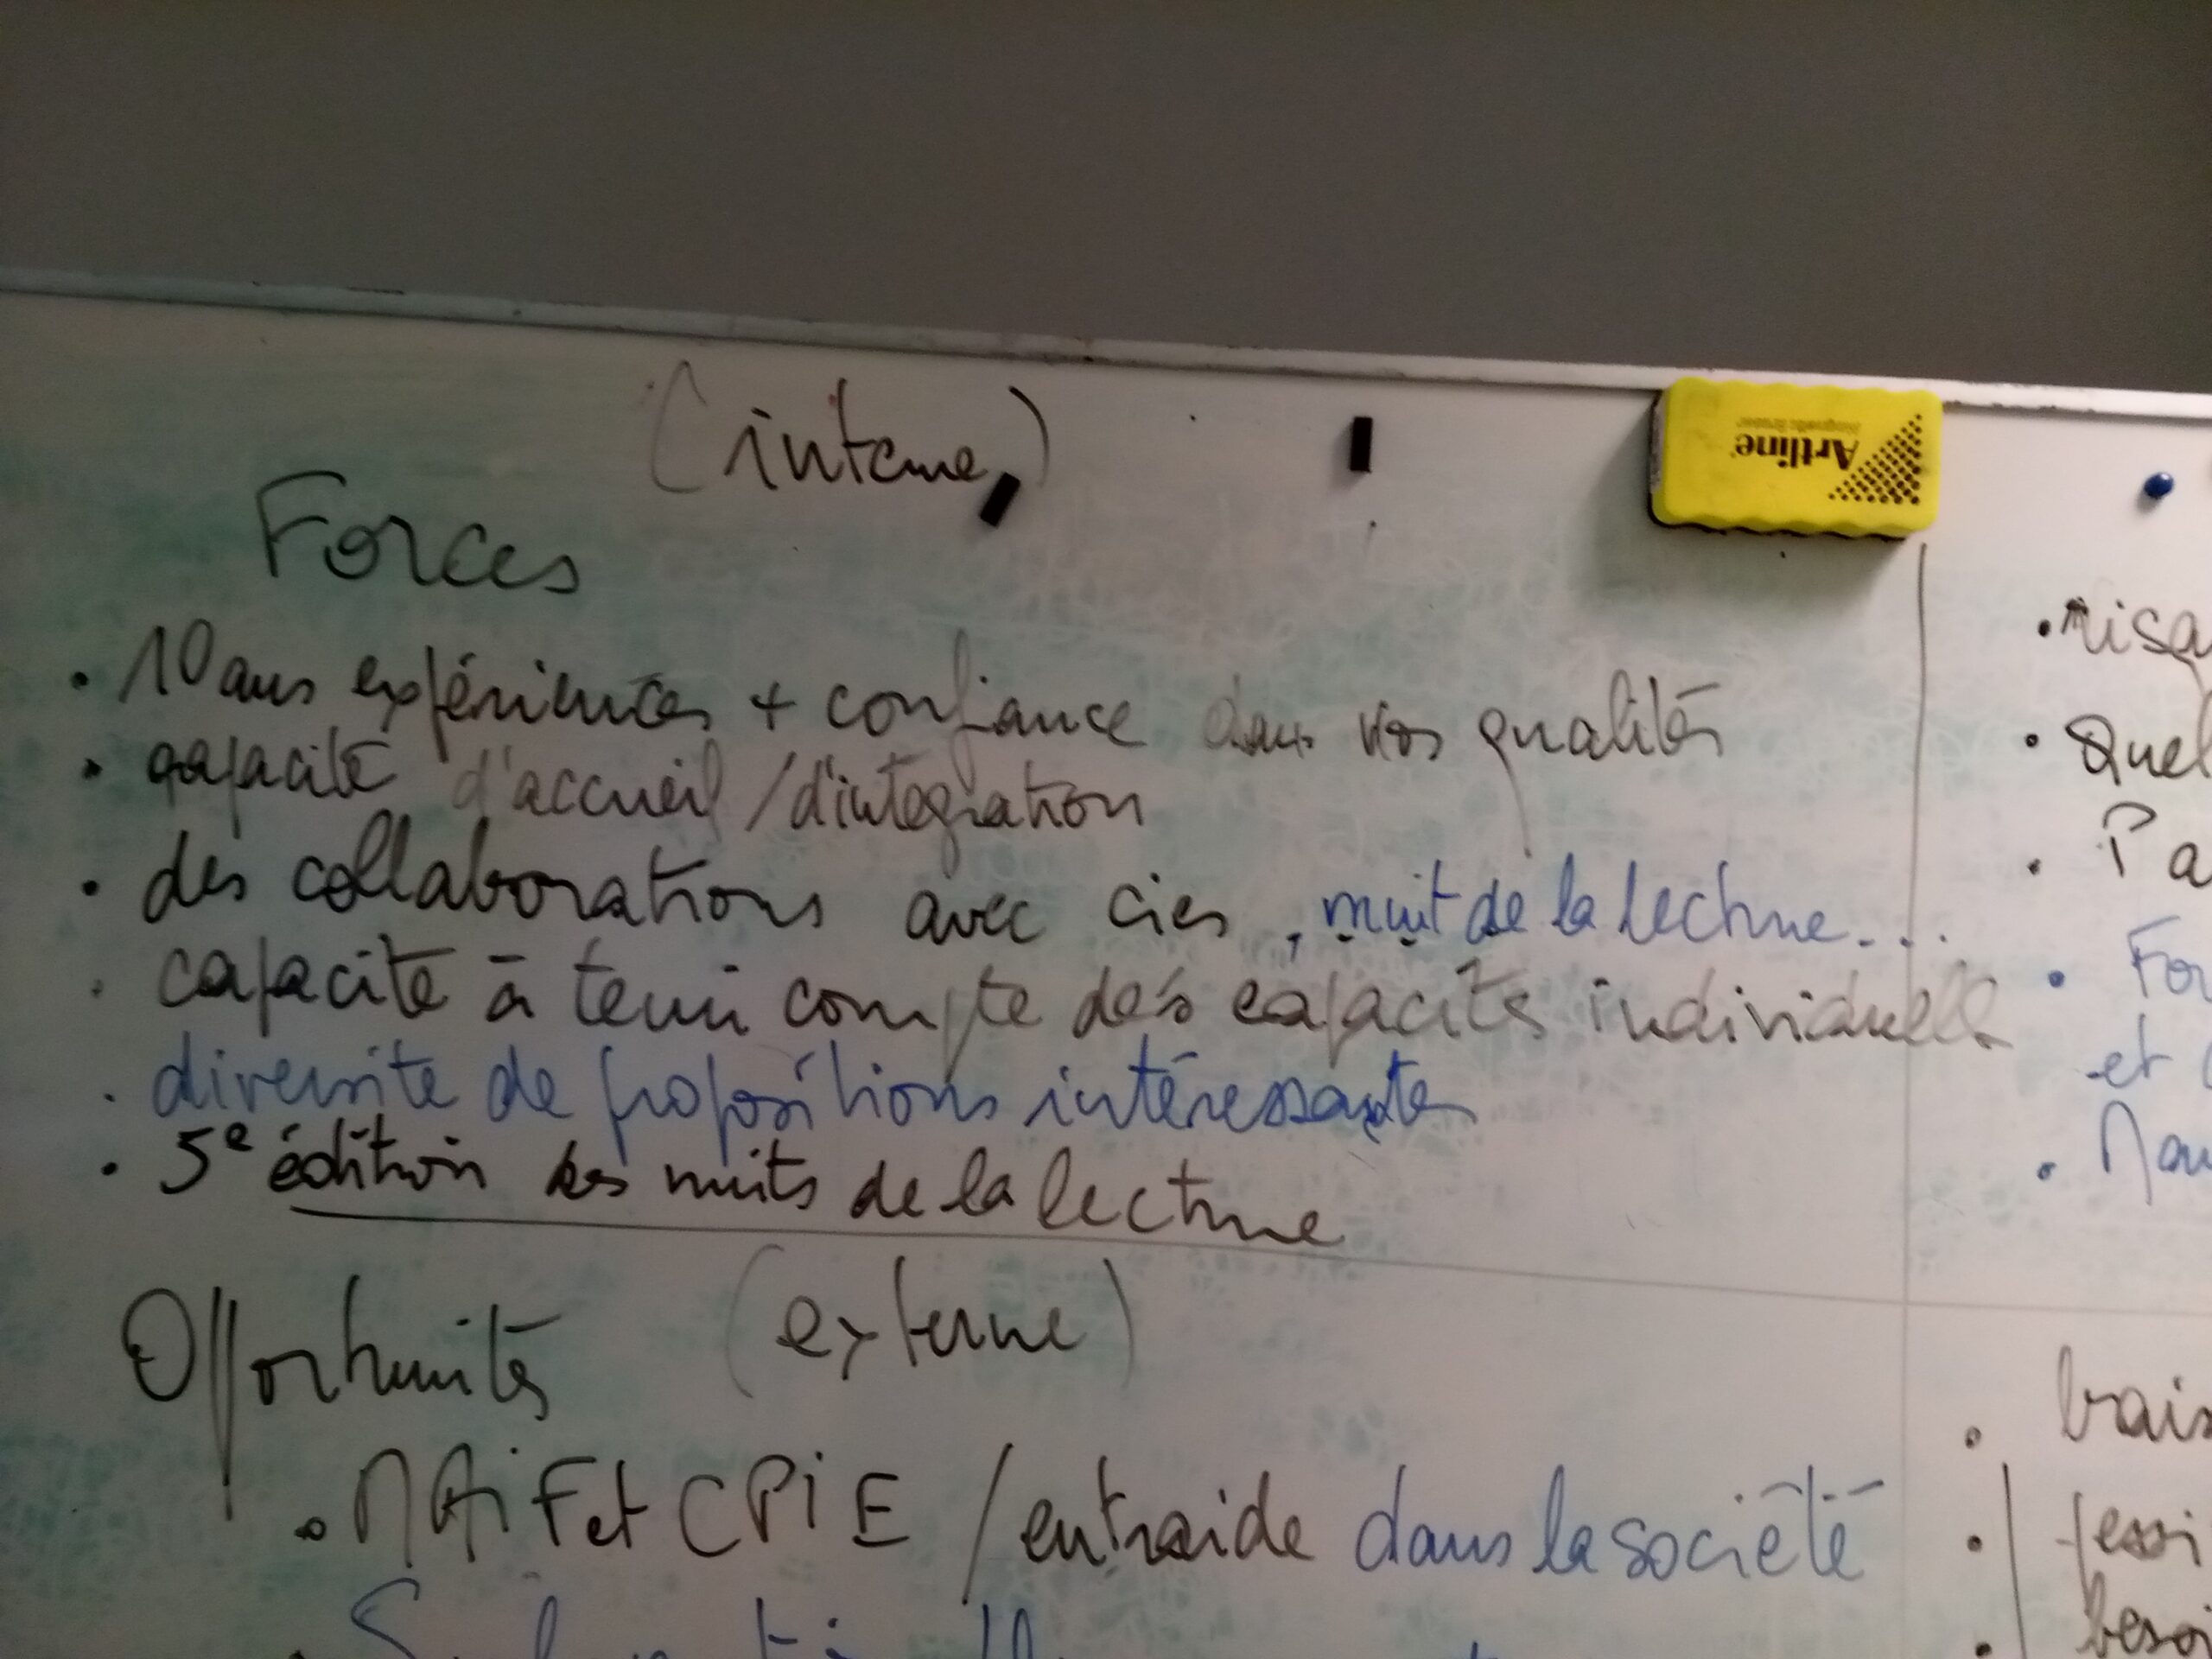 (interne)
Artline
Forces
• 10 ans expériences + confiance dans nos qualités
• capacité d'accueil / d'intégration
• des collaborations avec cies, nuit de la lecture...
• capacité à tenir compte des capacités individuelles
• diversité de propositions intéressantes
• 5e édition des nuits de la lecture
Opportunités (externe)
• MAiF et CPiE / entraide dans la société
• Quel
• Pa
• For
et